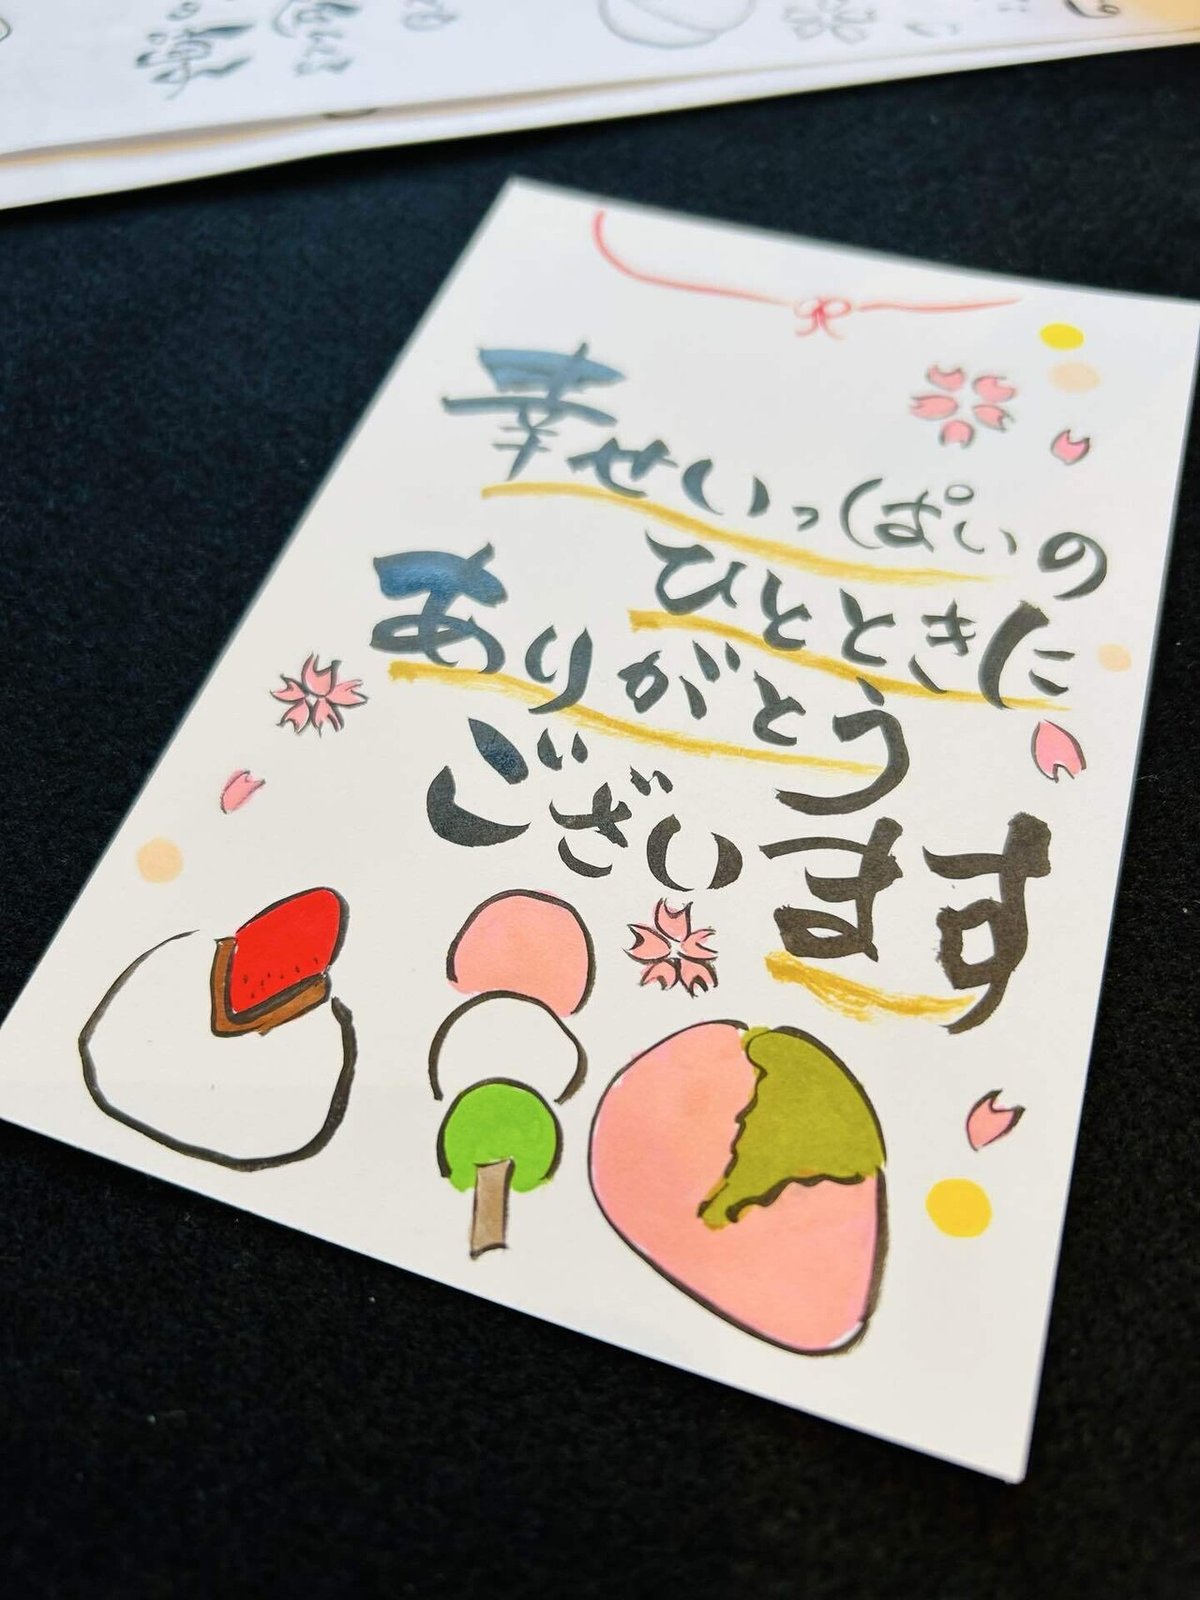 幸せいっぱいの
ひとときに
ありがとう
ございます